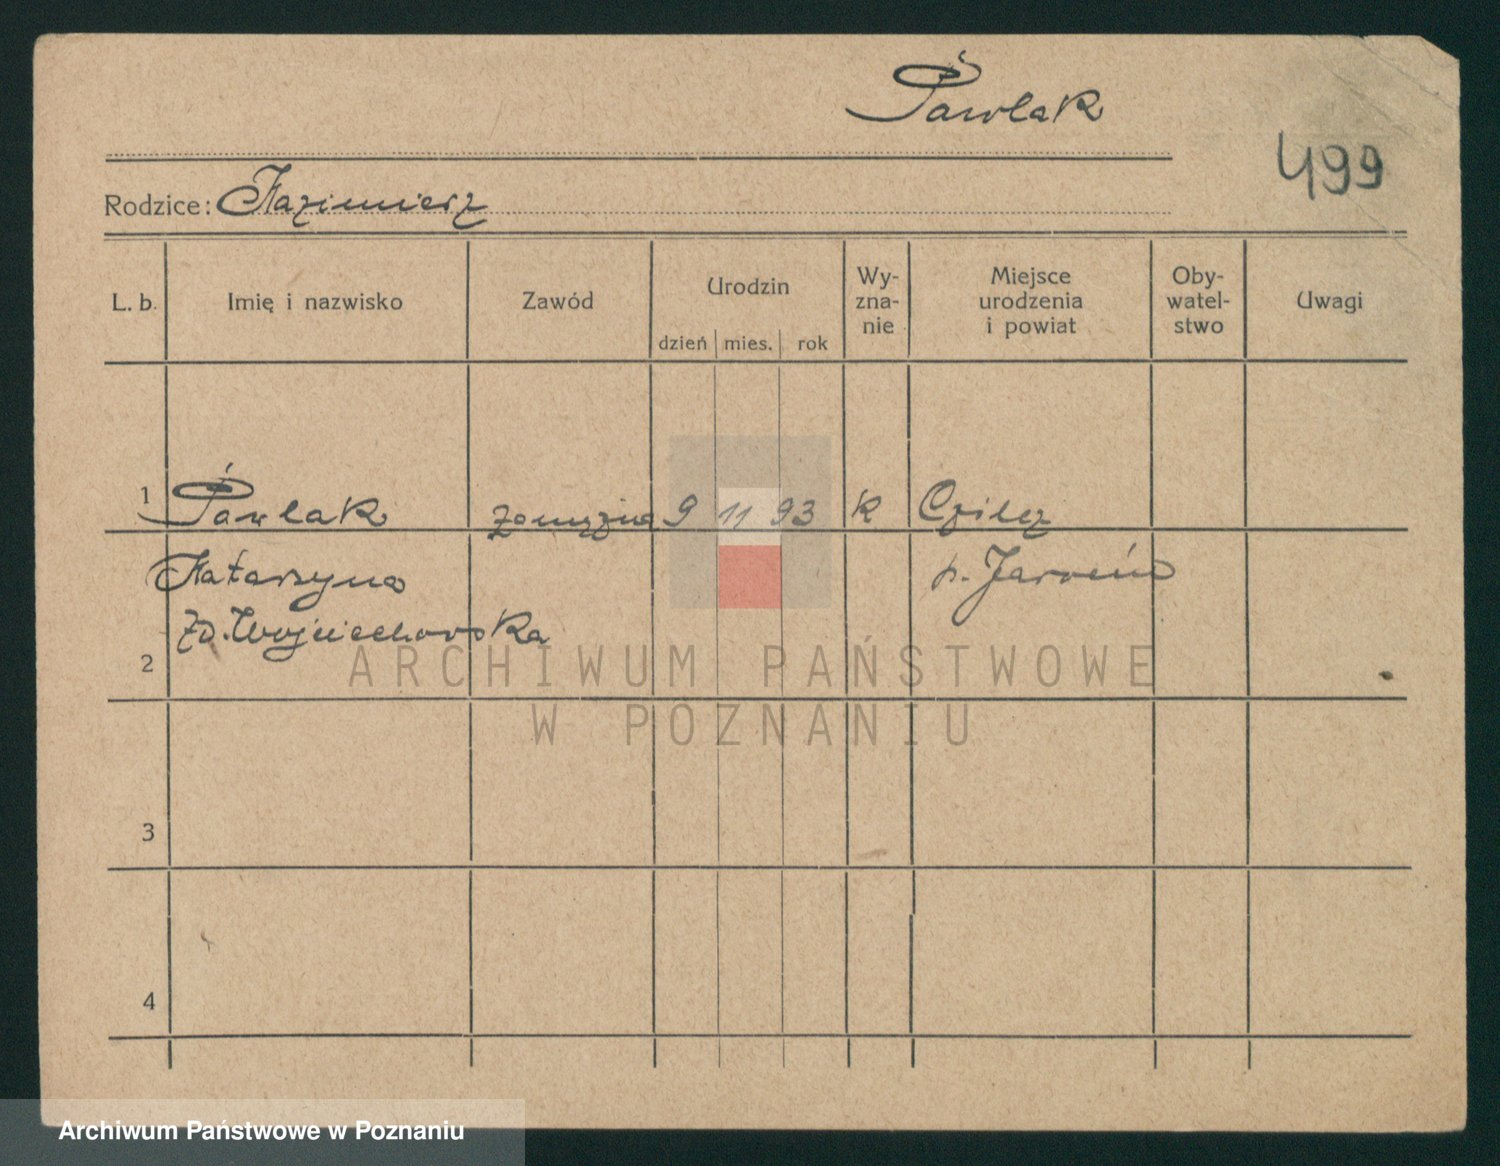 Pawlak
499
Rodzice: Kazimierz
L. b. Imię i nazwisko Zawód Urodzin dzień mies. rok Wy-zna-nie Miejsce urodzenia i powiat Oby-watel-stwo Uwagi
1 Pawlak zamężna 9 11 93 k
Katarzyna p. Jarocin
zd. Wojciechowska
2
3
4
ARCHIWUM PAŃSTWOWE
W POZNANIU
Archiwum Państwowe w Poznaniu